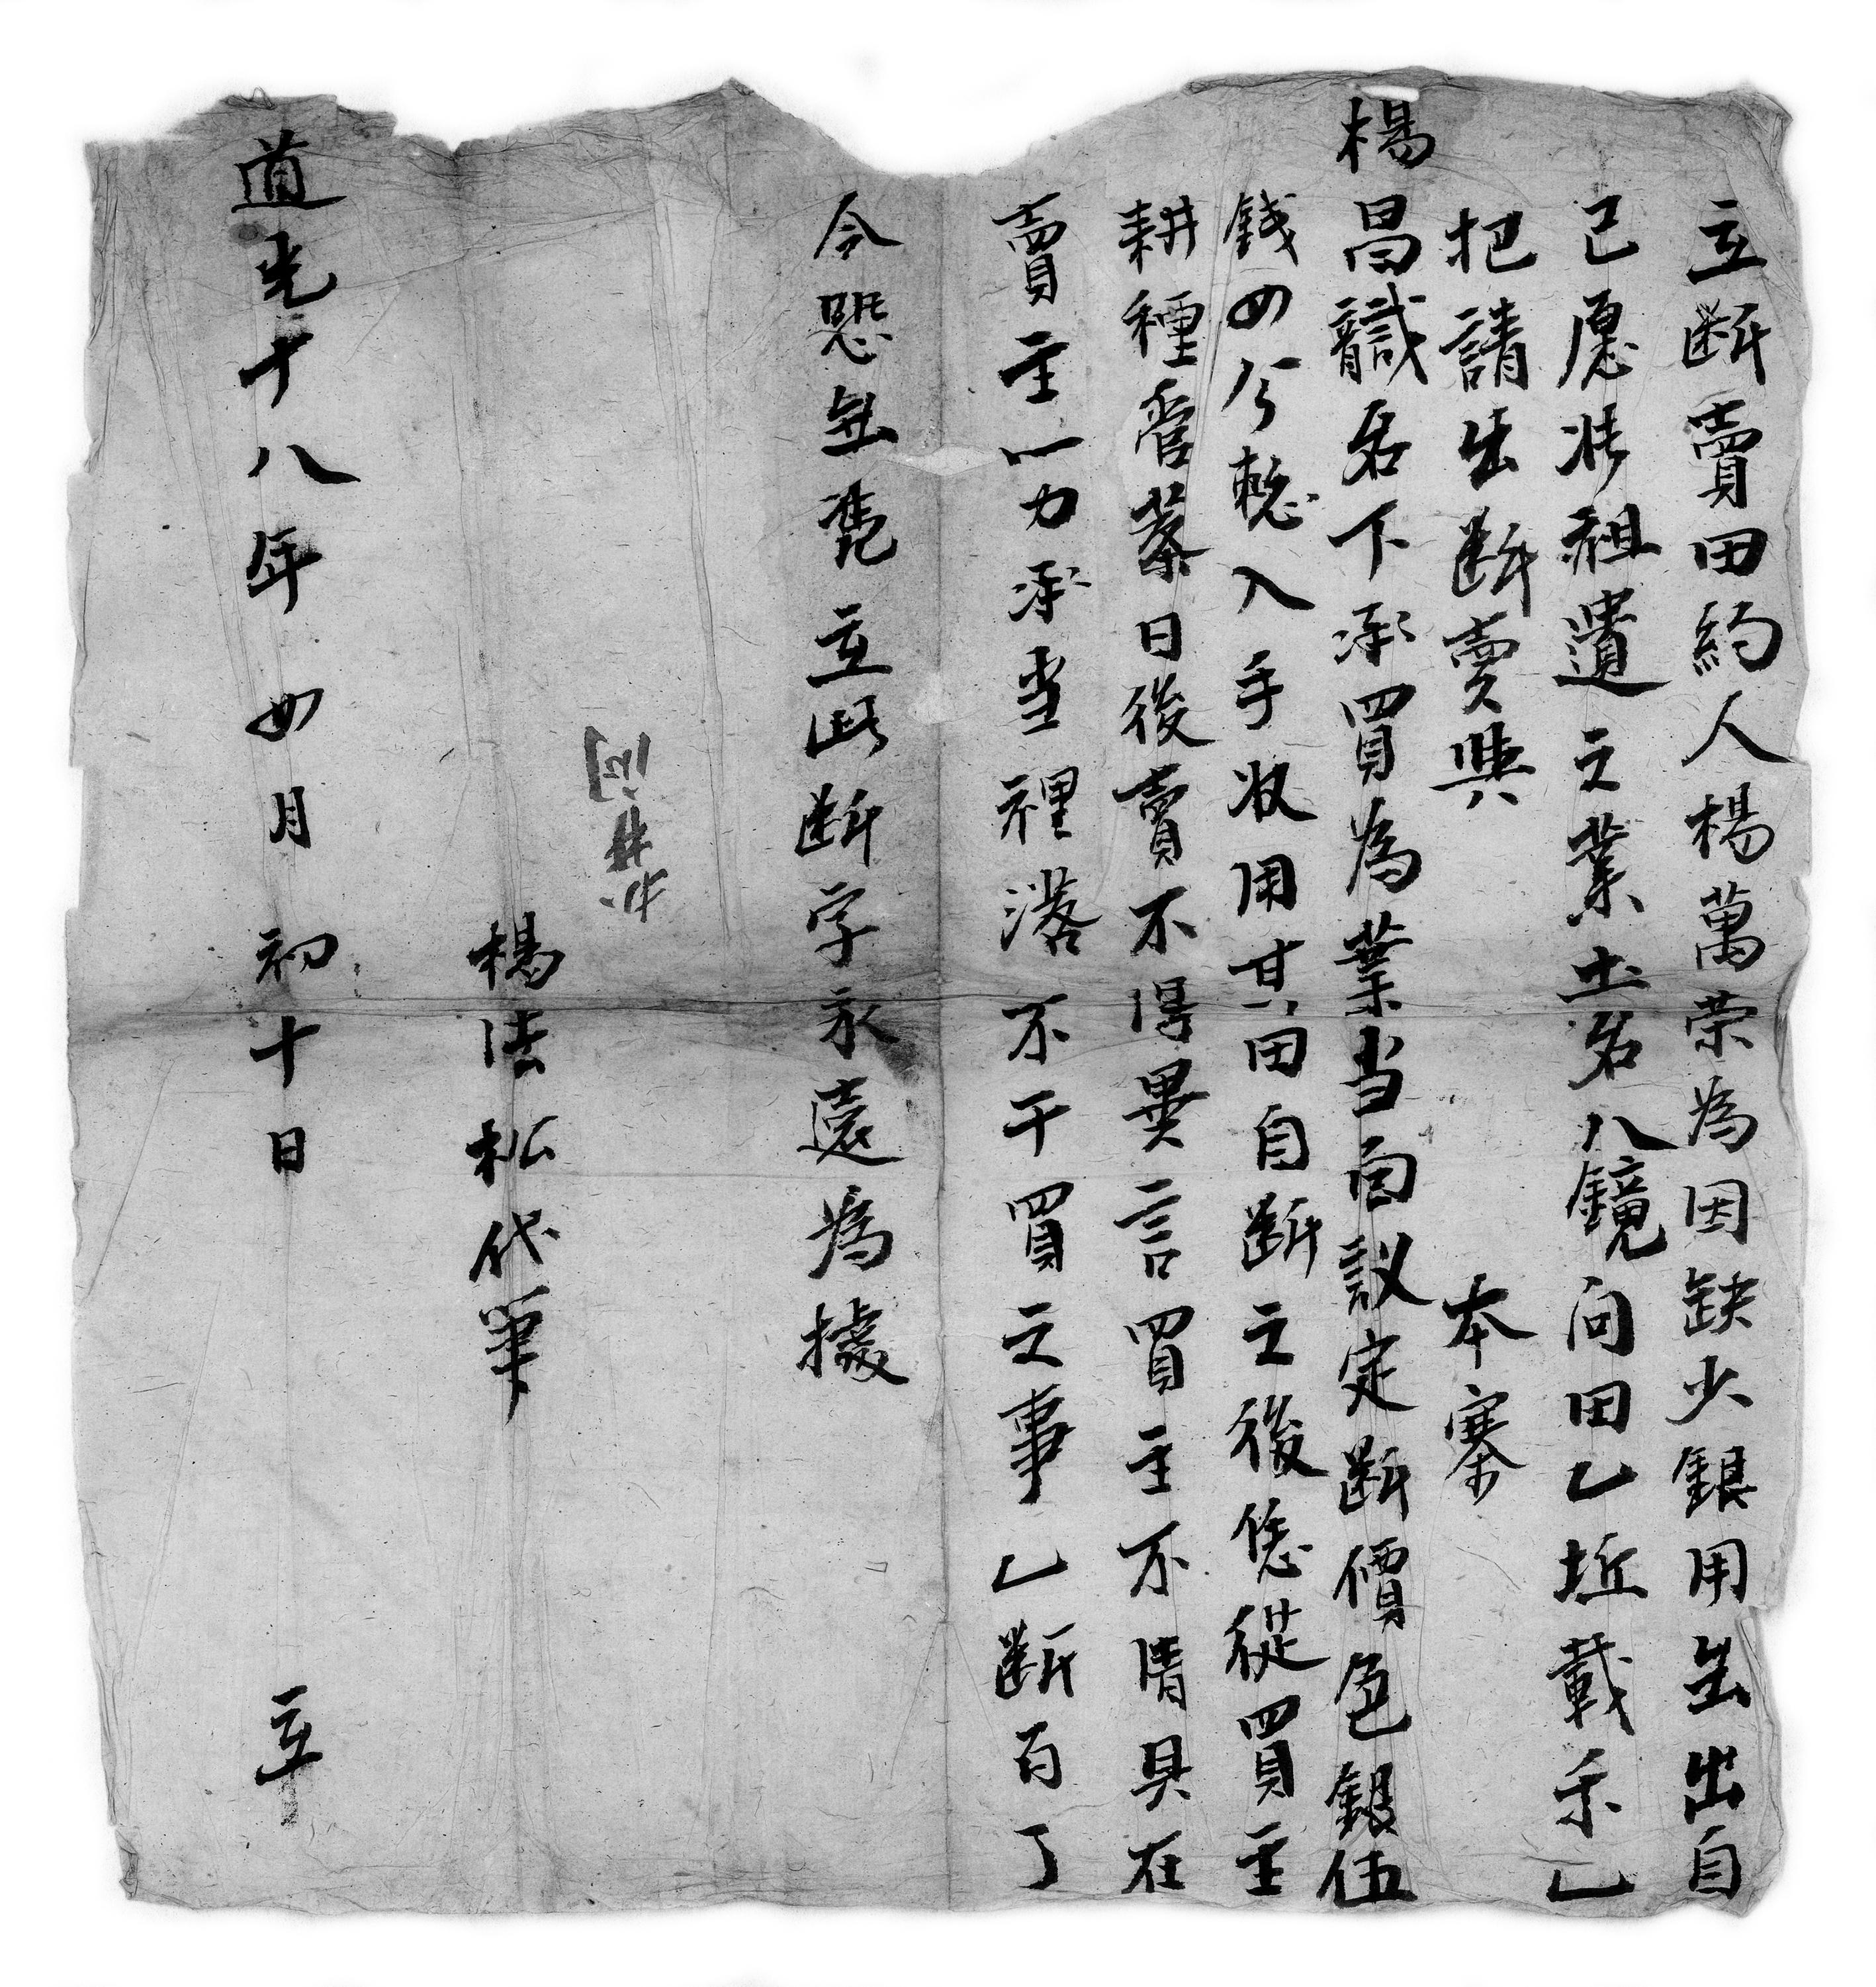 立断賣田約人楊萬荣為因缺少銀用無出自
己愿将祖遺之業土名八鏡问田乙坵載禾乙
把請出断賣與 本寨
楊昌識名下承買為業当面議定断價色銀伍
錢四分整入手收用其田自断之後恁從買主
耕種管業日後賣不得異言買主不清具在
賣主一力承当裡落不干買主之事乙断百了
今恐無凴立此断字永遠為據
楊法私代筆
道光十八年四月初十日 立